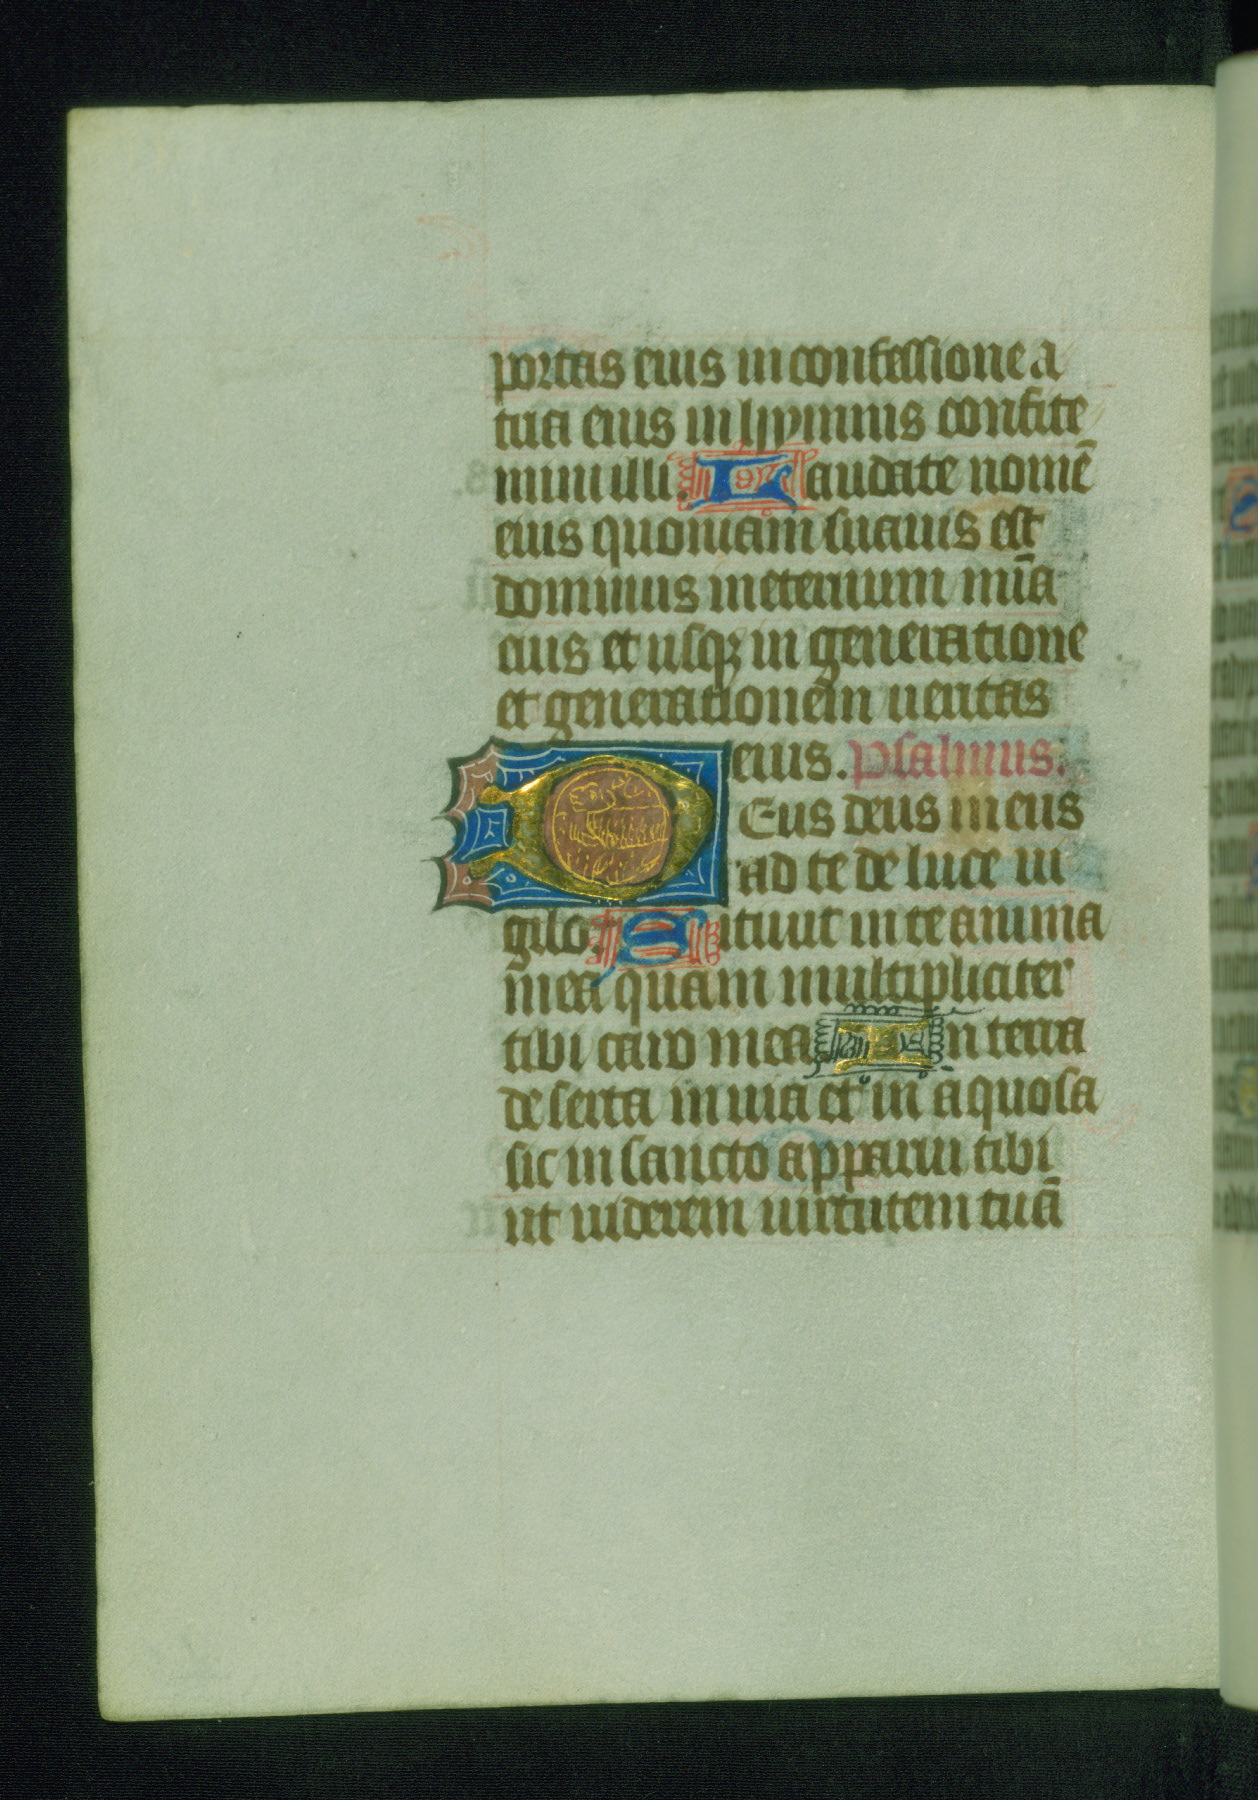 portas eius in confessione a
tua eius in hymnis confite
mini illi. Laudate nomē
eius quoniam suauis est
dominus in eternum mīa
eius et usqꝫ in generatione
et generationem ueritas
eius. Psalmus.
Deus deus meus
ad te de luce ui
gilo. Sitiuit in te anima
mea quam multipliciter
tibi caro mea In terra
deserta inuia et in aquosa
sic in sancto apparui tibi
ut uiderem uirtutem tuā